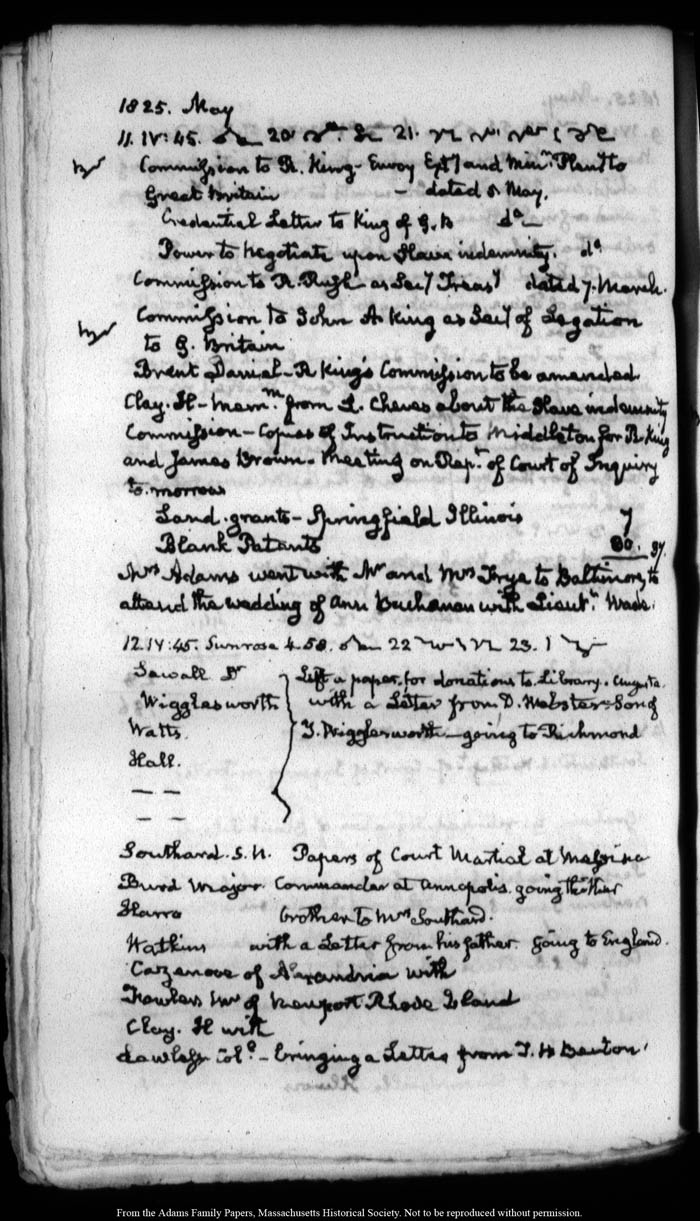 1825. May
11. IV:45. 20 21.
Commission to R. King - Envoy Exty and Minr. Plenyto
Great Britain — dated 5 May.
Credential Letter to King of G.B do—
Power to negotiate upon Slave indemnity. do
Commission to R. Rush as Secy Treasy dated 7. March.
Commission to John A. King as Secy of Legation
to G. Britain
Brent Daniel - R King's Commission to be amended
Clay. H - Memm. from L. Cheves about the Slave indemnity
Commission - Copies of Instructions to Middleton for R. King
and James Brown. Meeting on Rept. of Court of Inquiry
to-morrow
Land grants - Springfield Illinois 7
Blank Patents 30. 37.
Mrs Adams went with Mr and Mrs Frye to Baltimore, to
attend the wedding of Ann Buchanan with Lieutt. Wade.
12. IV:45. Sunrose 4.58. 22 23. 1
Sewall Dr Left a paper for donations to Library. Augusta.
Wigglesworth with a Letter from D. Webster - Son of
Watts. T. Wigglesworth - going to Richmond
Hall.
— —
— —
Southard. S. N. Papers of Court Martial at Messina
Burd Major. Commander at Annapolis. going thither
Harro brother to Mrs Southard.
Watkins with a Letter from his father. going to England.
Cazenove of Alexandria with
Fowler Mr of Newport Rhode Island
Clay. H with
Lawless Coll. - bringing a Letter from T. H Benton.
From the Adams Family Papers, Massachusetts Historical Society. Not to be reproduced without permission.